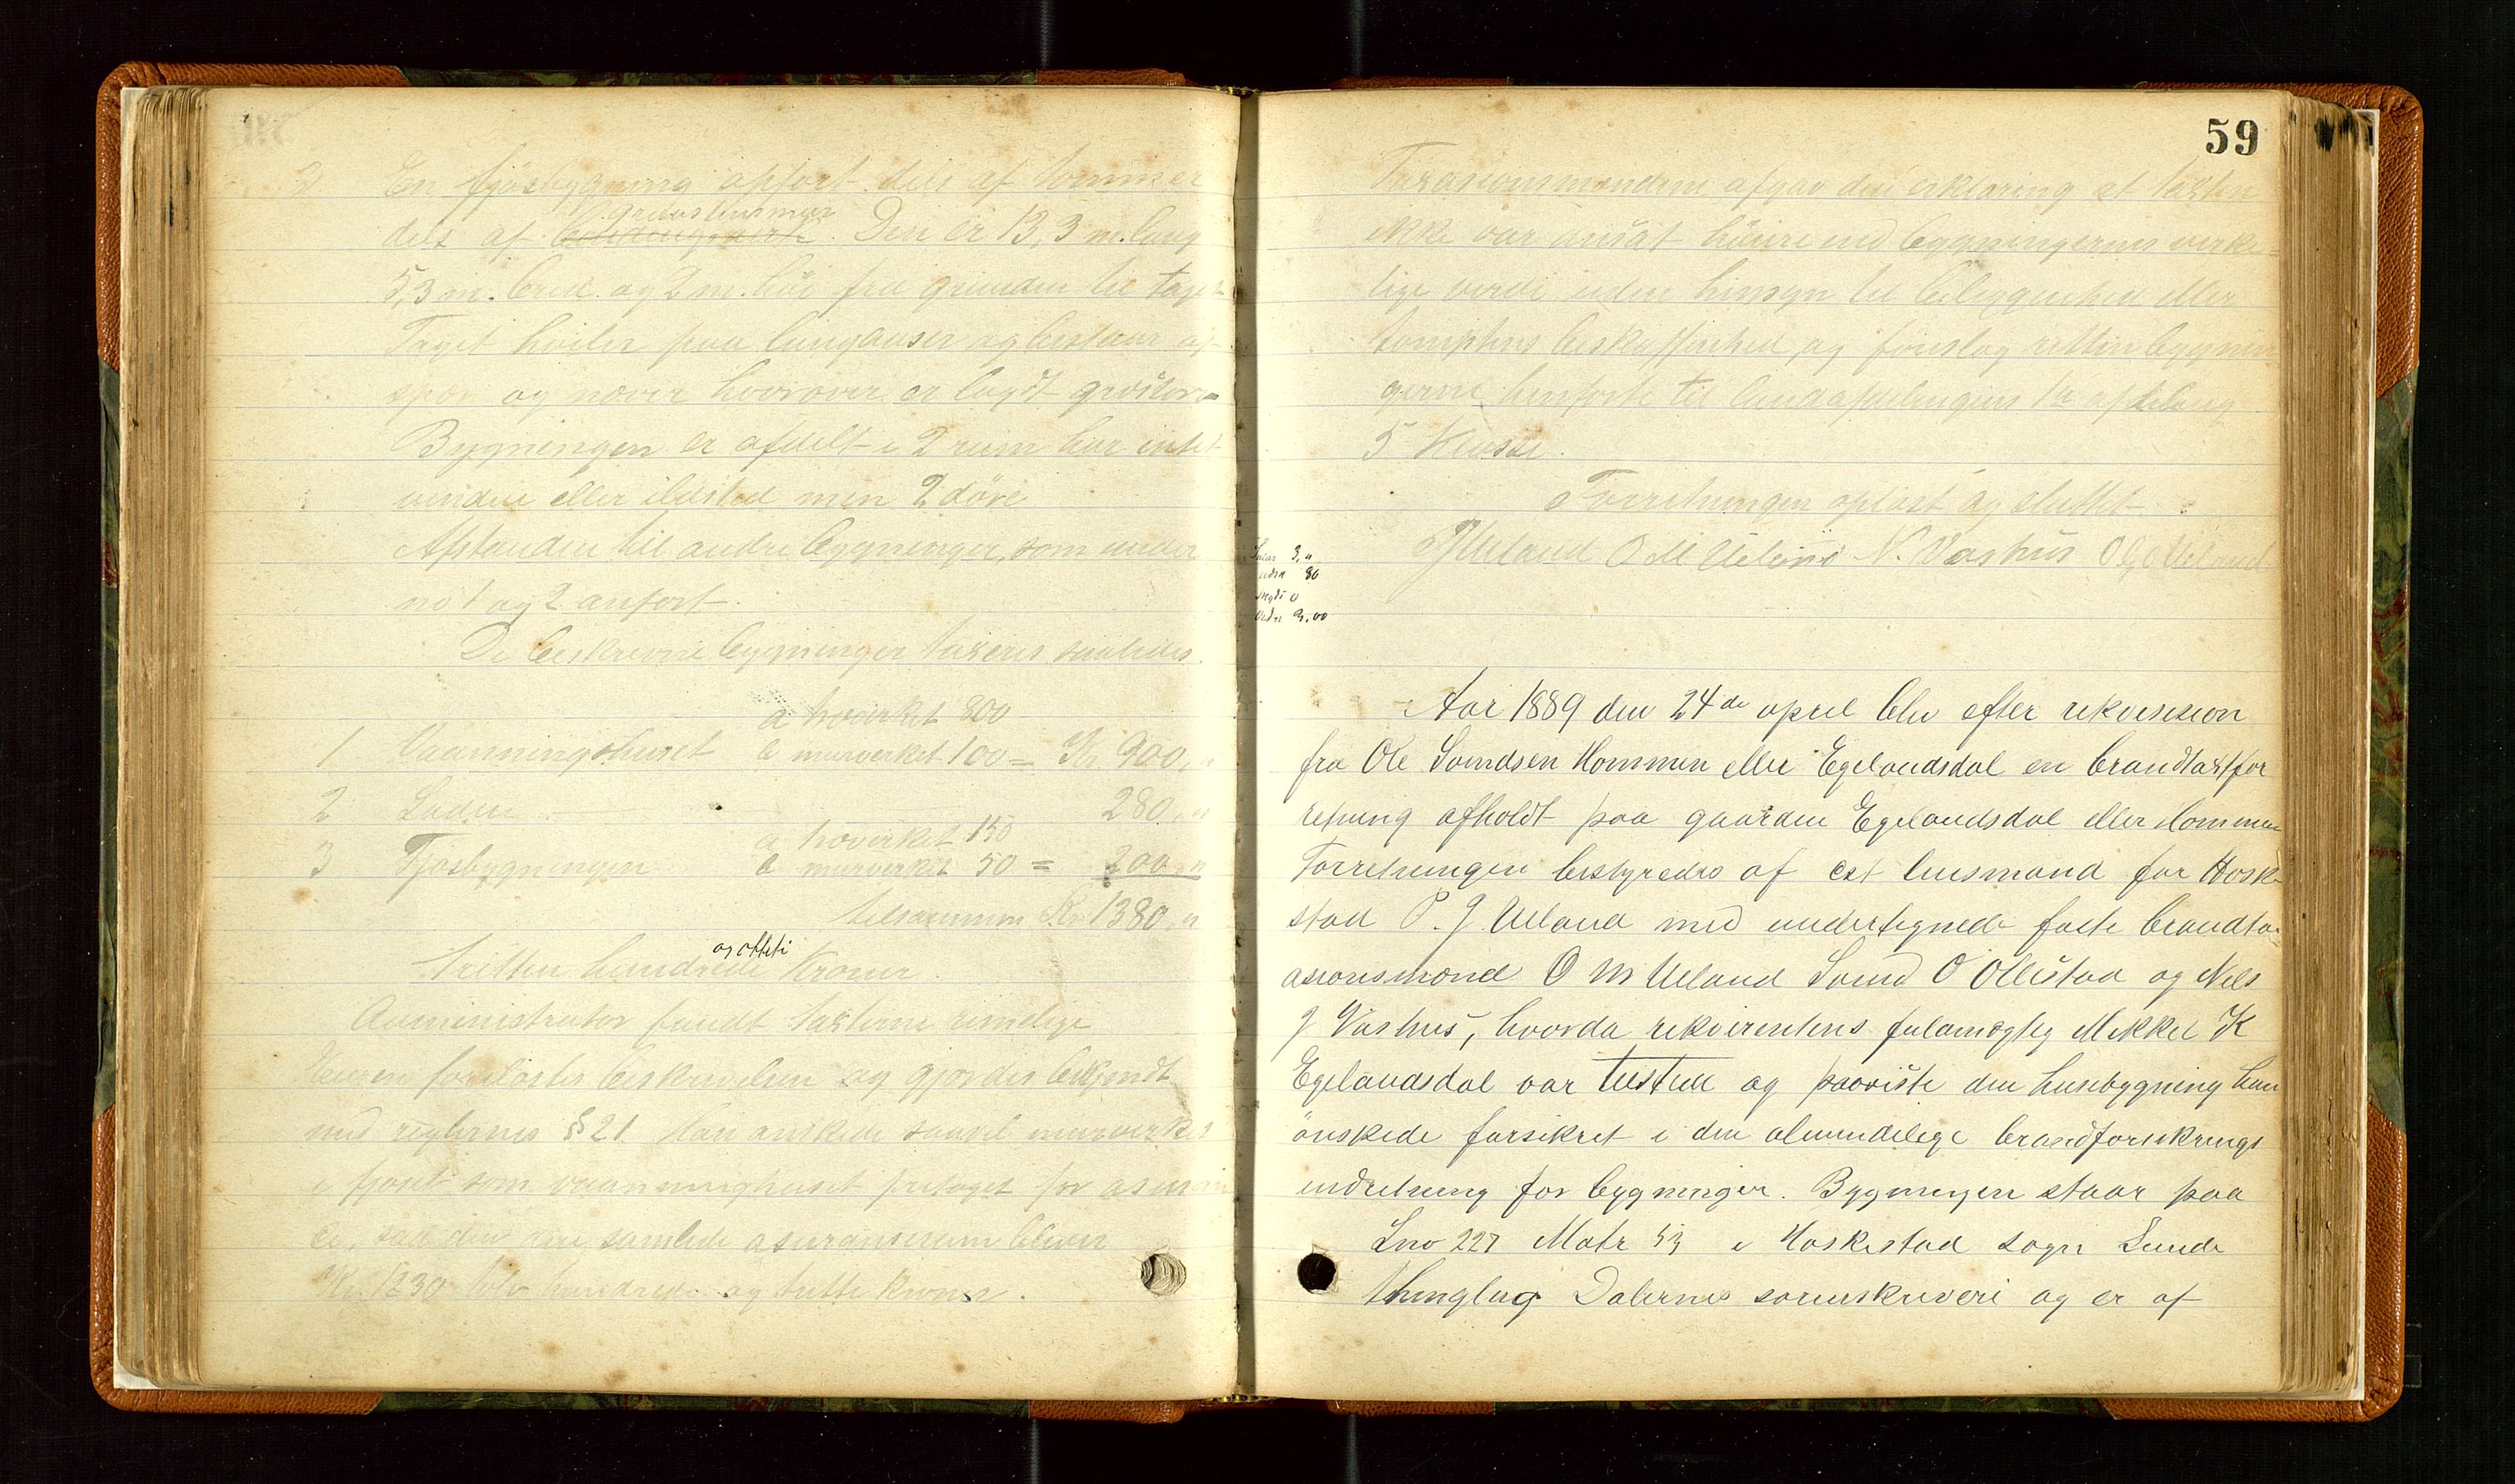 En fjøsbygning opført dels af tømmer
graastensmur
dels af bindingsverk. Den er 13,3 m. lang
5,3 m. bred og 2 m. høi fra grunden til taget
Taget hviler paa langaaser og bestaar af
spøn og næver hvorover er lagdt grøstorv
Bygningen er afdelt i 2 rum har intet
vindue eller ildsted men 2 døre
Afstanden til andre bygninger, som under
no 1 og 2 anført.
De beskrevne bygninger taxeres saaledes.
a hverket 800
1 Vaaningshuset b murverket 100 = Kr 900,"
2 Laden 280,"
a træverket 150
3 Fjøsbygningen b murverket 50 = 200,"
tilsammen Kr 1380,"
og otteti
tretten hundrede Kroner.
Administrator fandt taxterne rimelige
Eieren forelæstes beskrivelsen og gjordes bekjendt
med reglernes §21. Han ønskede saavel murverket
i fjøset som vaaninghuset fritaget for asuran
ce, saa den samlede asuransesum bliver
Kr. 1230 tolv hundrede og tretti kroner.
59
Taxasionsmændene afgav den erklæring at taxten
ikke var ansat høiere end bygningernes virke-
lige verdi uden hinsyn til beliggenhed eller
tomptens beskaffenhed, og foreslog retten bygnin
gerne henførte til landafdelingens 1ste afdeling
5 Klasse.
Forretningen oplæst og sluttet.
PJUeland O M Ueland N. Vashus O G Ueland
3,"
80
0
9.00
Aar 1889 den 24de april blev efter rekvisision
fra Ole Svendsen Hommen eller Egelandsdal en brandtaxtfor
retning afholdt paa gaarden Egelandsdal eller Hommen
Forretningen bestyredes af cst lensmand for Heske
stad P. J. Ueland med undertegnede faste brandta
asionsmænd O M Ueland Svend O Ollestad og Nels
J Vashus, hvorda rekvirentens fulamægtig Mikkel K
Egelandsdal var tilstede og paaviste den husebygning han
ønskede forsikret i den almindelige brandforsikrings
indretning for bygninger. Bygningen staar paa
Lno 227 Matr 53 i Heskestad sogn Lunde
thinglag Dalernes sorenskriveri og er af